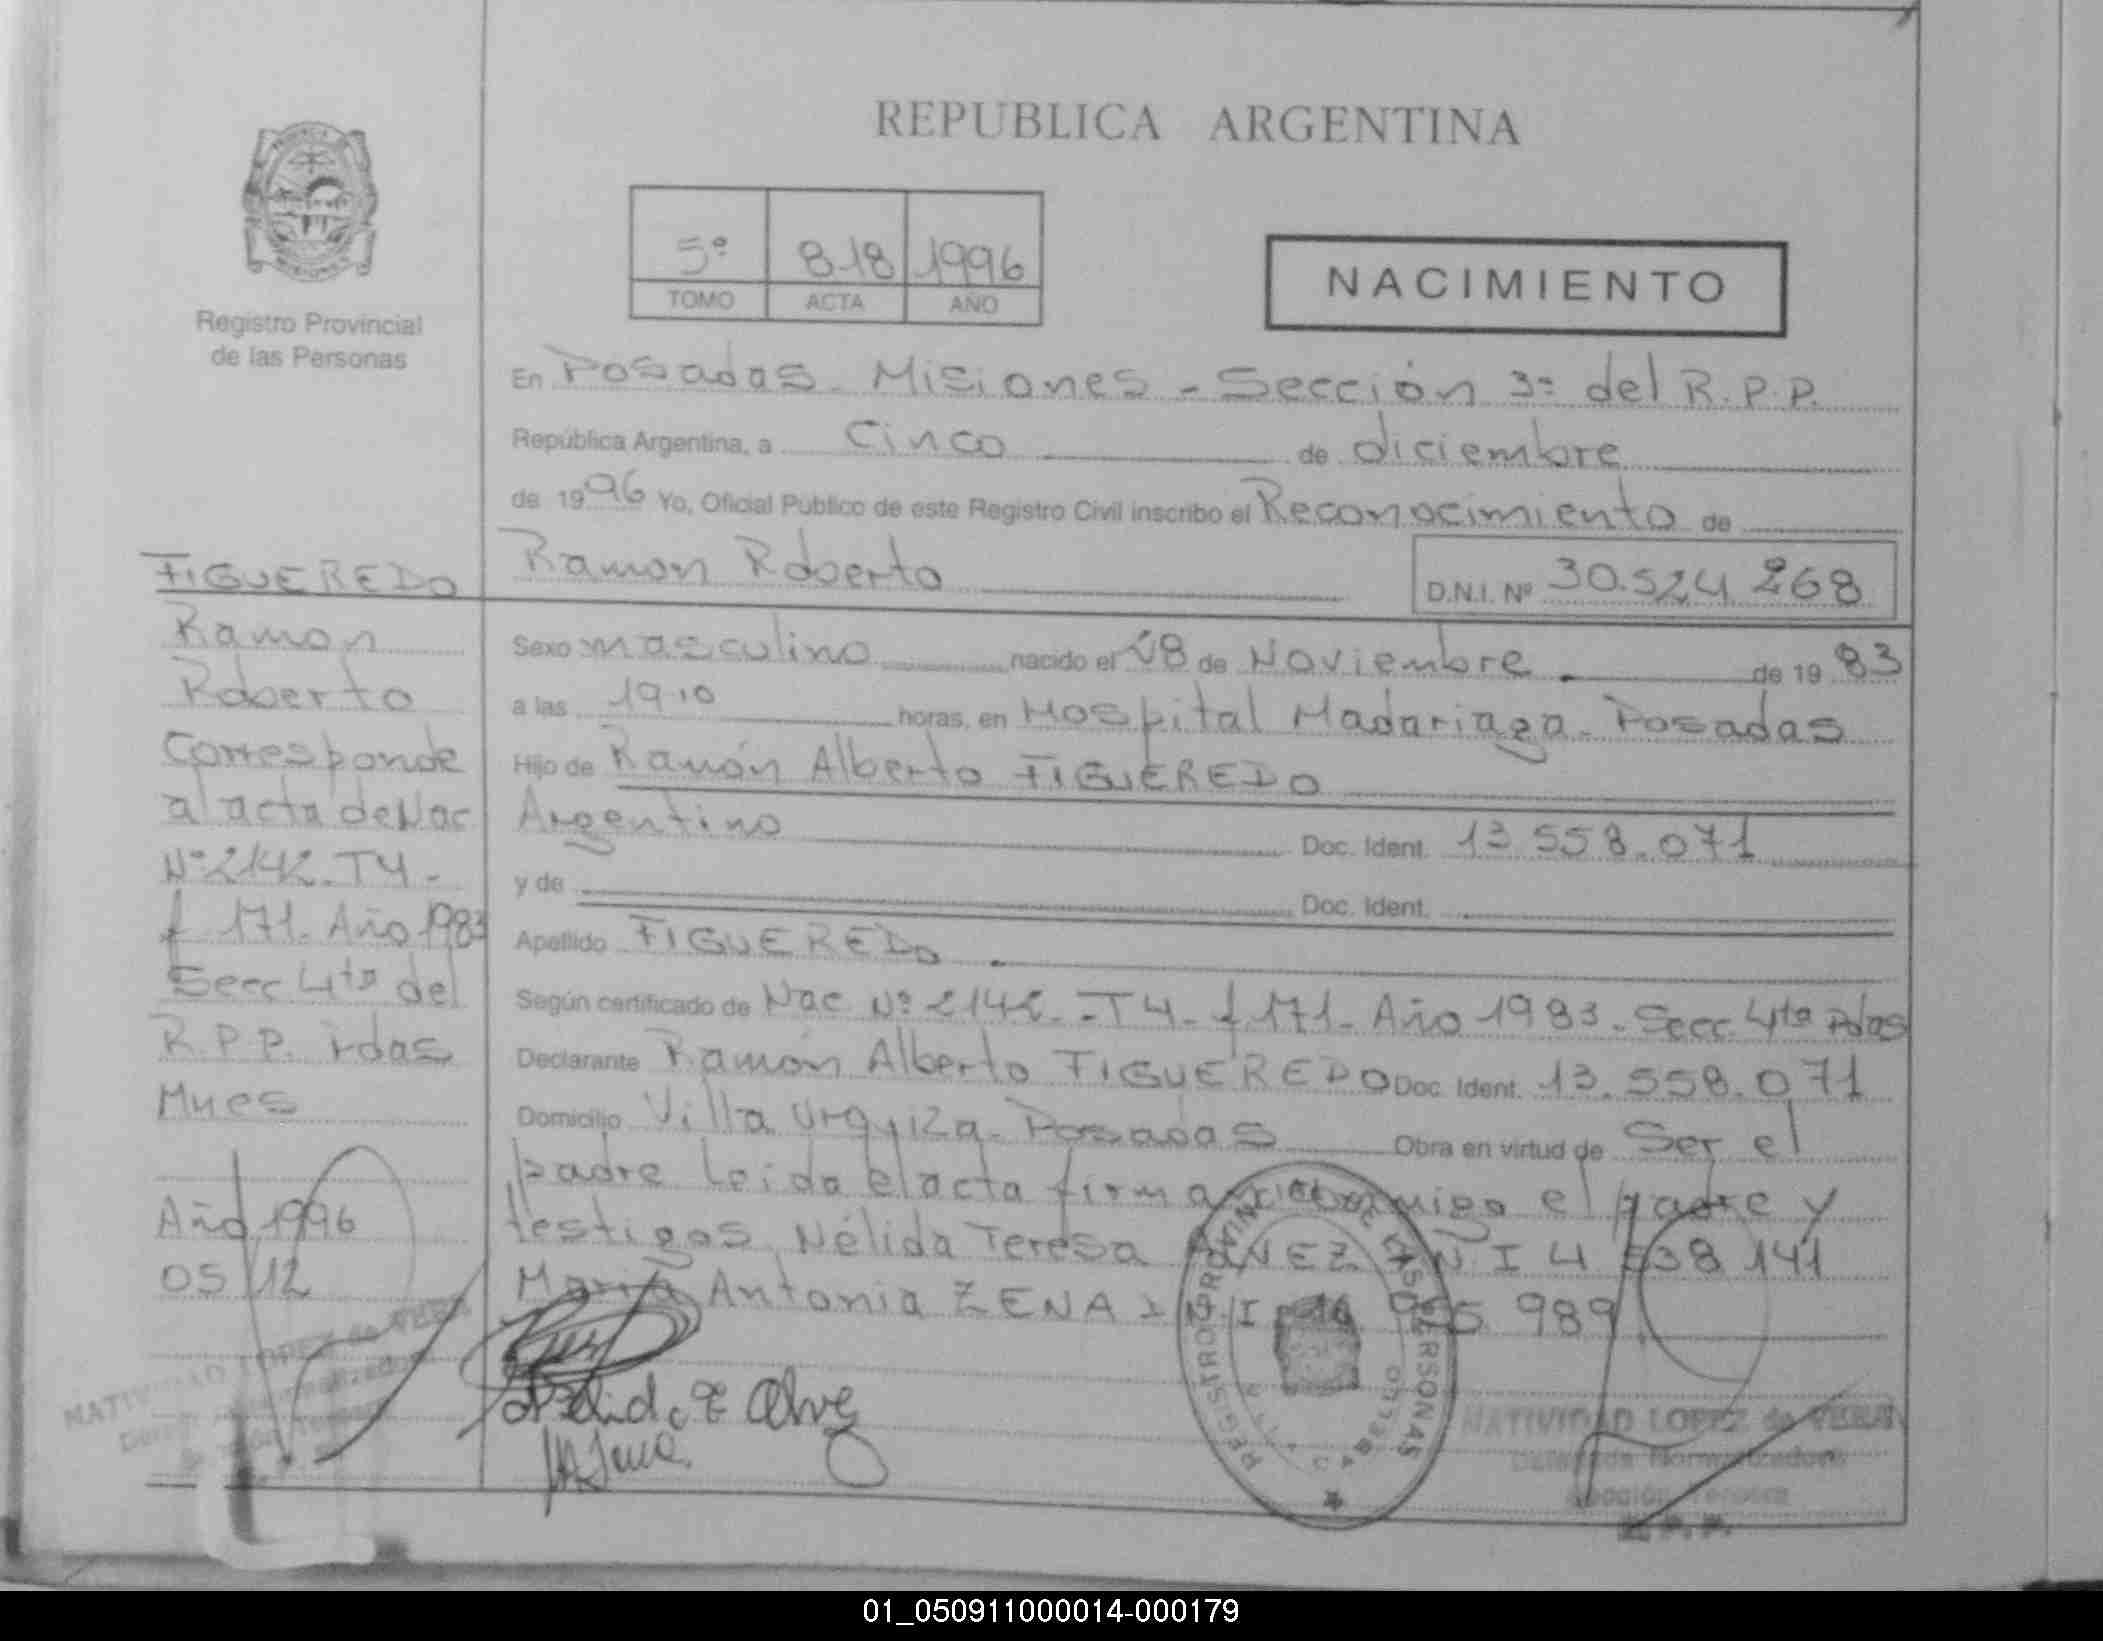 REPUBLICA ARGENTINA
5º 818 1996
TOMO ACTA AÑO
NACIMIENTO
Registro Provincial
de las Personas
En Posadas - Misiones - Sección 3ª del R.P.P.
República Argentina, a Cinco de diciembre
de 1996 Yo, Oficial Público de este Registro Civil inscribo el Reconocimiento de
Ramon Roberto D.N.I. Nº 30.524.268
Sexo masculino nacido el 28 de Noviembre de 1983
a las 19.10 horas, en Hospital Madariaga - Posadas
Hijo de Ramón Alberto FIGUEREDO
Argentino Doc. Ident. 13.558.071
y de Doc. Ident.
Apellido FIGUEREDO
Según certificado de Nac Nº 2142 - T4 - f 171 - Año 1983 - Secc 4ta Pdas
Declarante Ramón Alberto FIGUEREDO Doc. Ident. 13.558.071
Domicilio Villa Urquiza - Posadas Obra en virtud de Ser el
padre Leida el acta firma conmigo el padre y
testigos Nélida Teresa 141
Maria Antonia ZENA 989
FIGUEREDO
Ramon
Roberto
Corresponde
al acta de Nac
Nº 2142 - T4 -
f 171 - Año 1983
Secc 4ta del
R.P.P. Pdas
Mnes
Año 1996
05/12
NATIVIDAD LOPEZ de
REGISTRO PROVINCIAL DE LAS PERSONAS
NATIVIDAD LOPEZ de
Delegada Normalizadora
Sección Tercera
R.P.P.
01_050911000014-000179